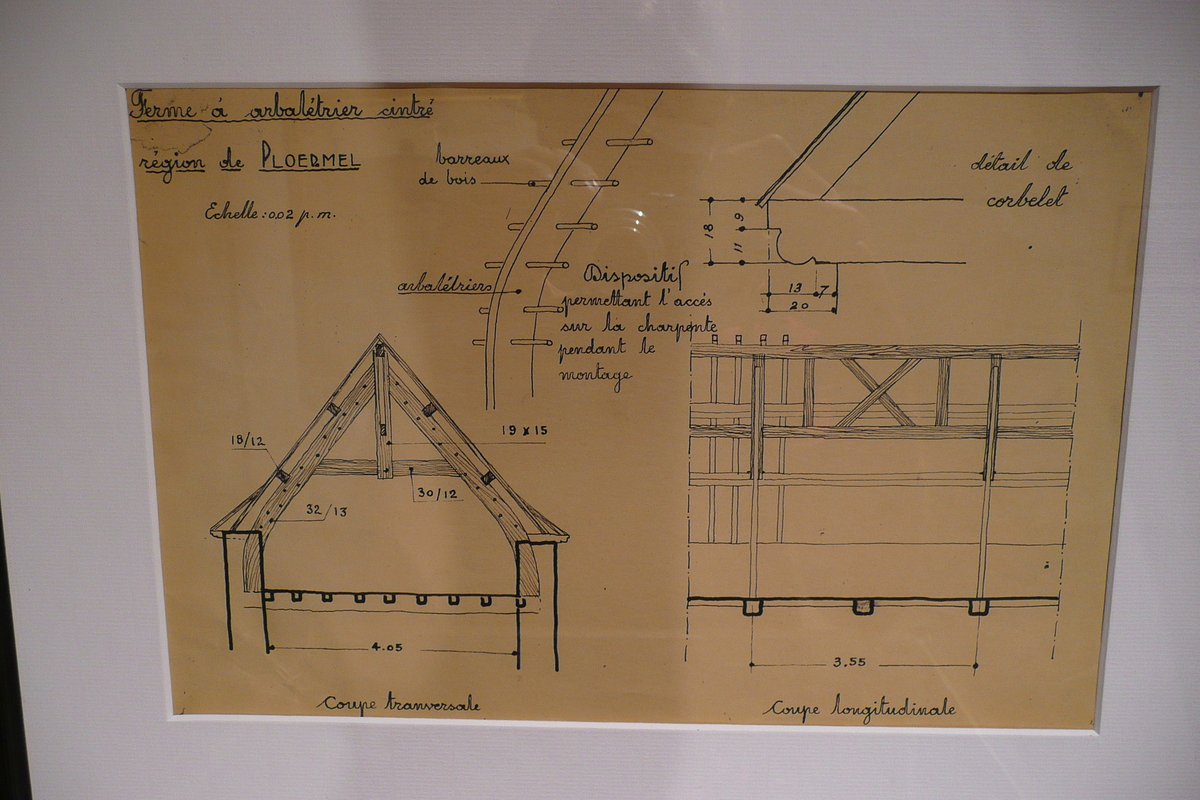 Ferme à arbalétrier cintré
région de PLOERMEL
Echelle : 0.02 p.m.
barreaux
de bois
arbalétriers
Dispositif
permettant l'accés
sur la charpente
pendant le
montage
détail de
corbelet
18
9
11
13
7
20
18/12
19 x 15
30/12
32/13
4.05
3.55
Coupe tranversale
Coupe longitudinale